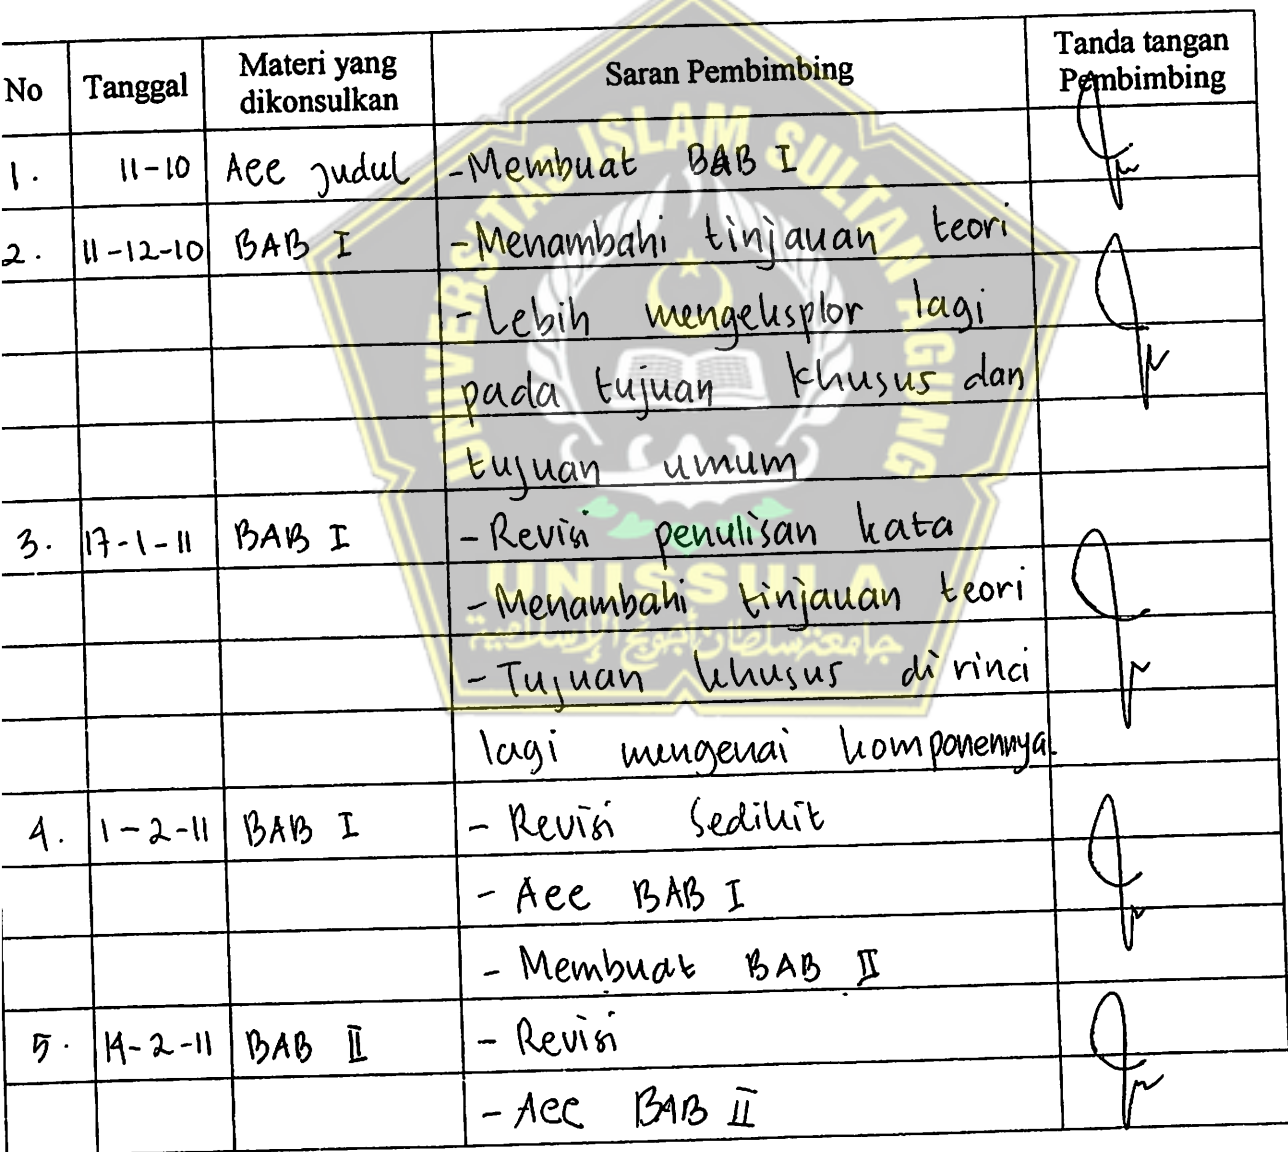 No | Tanggal | Materi yang dikonsulkan | Saran Pembimbing | Tanda tangan Pembimbing
1. | 11-10 | Acc judul | - Membuat BAB I
2. | 11-12-10 | BAB I | - Menambahi tinjauan teori
- Lebih mengeksplor lagi
pada tujuan khusus dan
tujuan umum
3. | 17-1-11 | BAB I | - Revisi penulisan kata
- Menambahi tinjauan teori
- Tujuan khusus di rinci
lagi mengenai komponennya.
4. | 1-2-11 | BAB I | - Revisi sedikit
- Acc BAB I
- Membuat BAB II
5. | 14-2-11 | BAB II | - Revisi
- Acc BAB II
UNIVERSITAS ISLAM SULTAN AGUNG
UNISSULA
جامعة سلطان أجونج الإسلامية